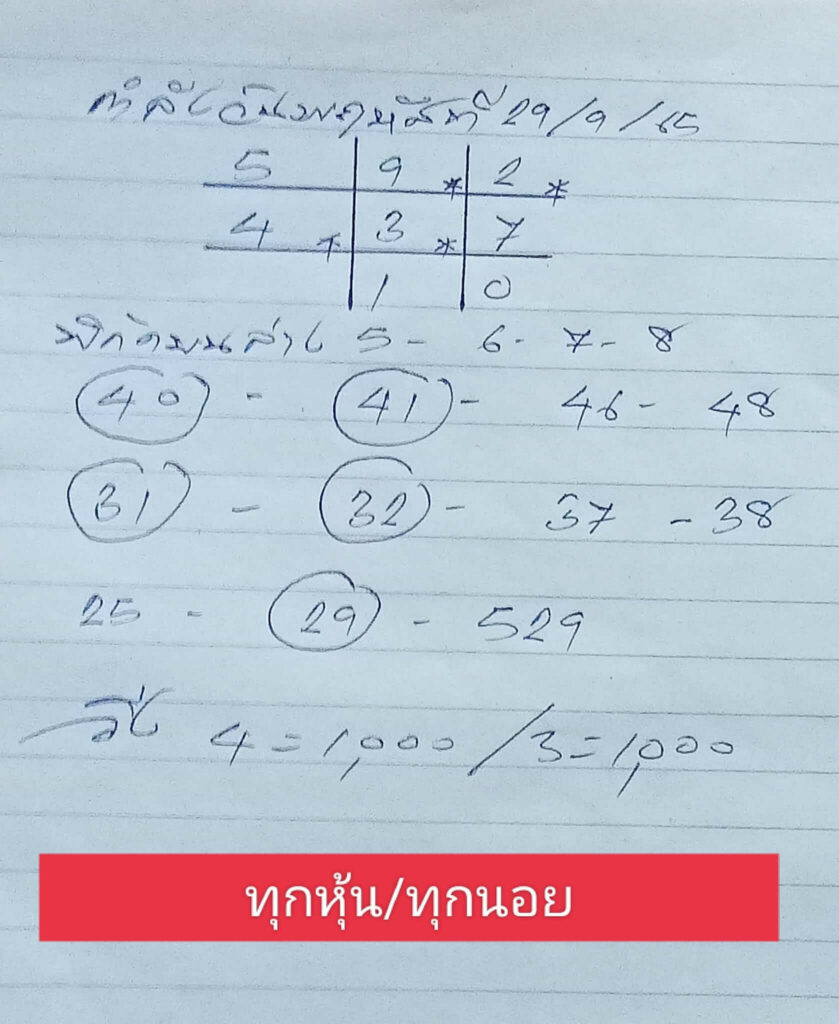 กำลังวันพฤหัสที่ 29/9/65
5 9 * 2 *
4 * 3 * 7
1 0
พิกัดบนล่าง 5 - 6 - 7 - 8
40 - 41 - 46 - 48
31 - 32 - 37 - 38
25 - 29 - 529
วิ่ง 4 = 1,000 / 3 = 1,000
ทุกหุ้น/ทุกนอย